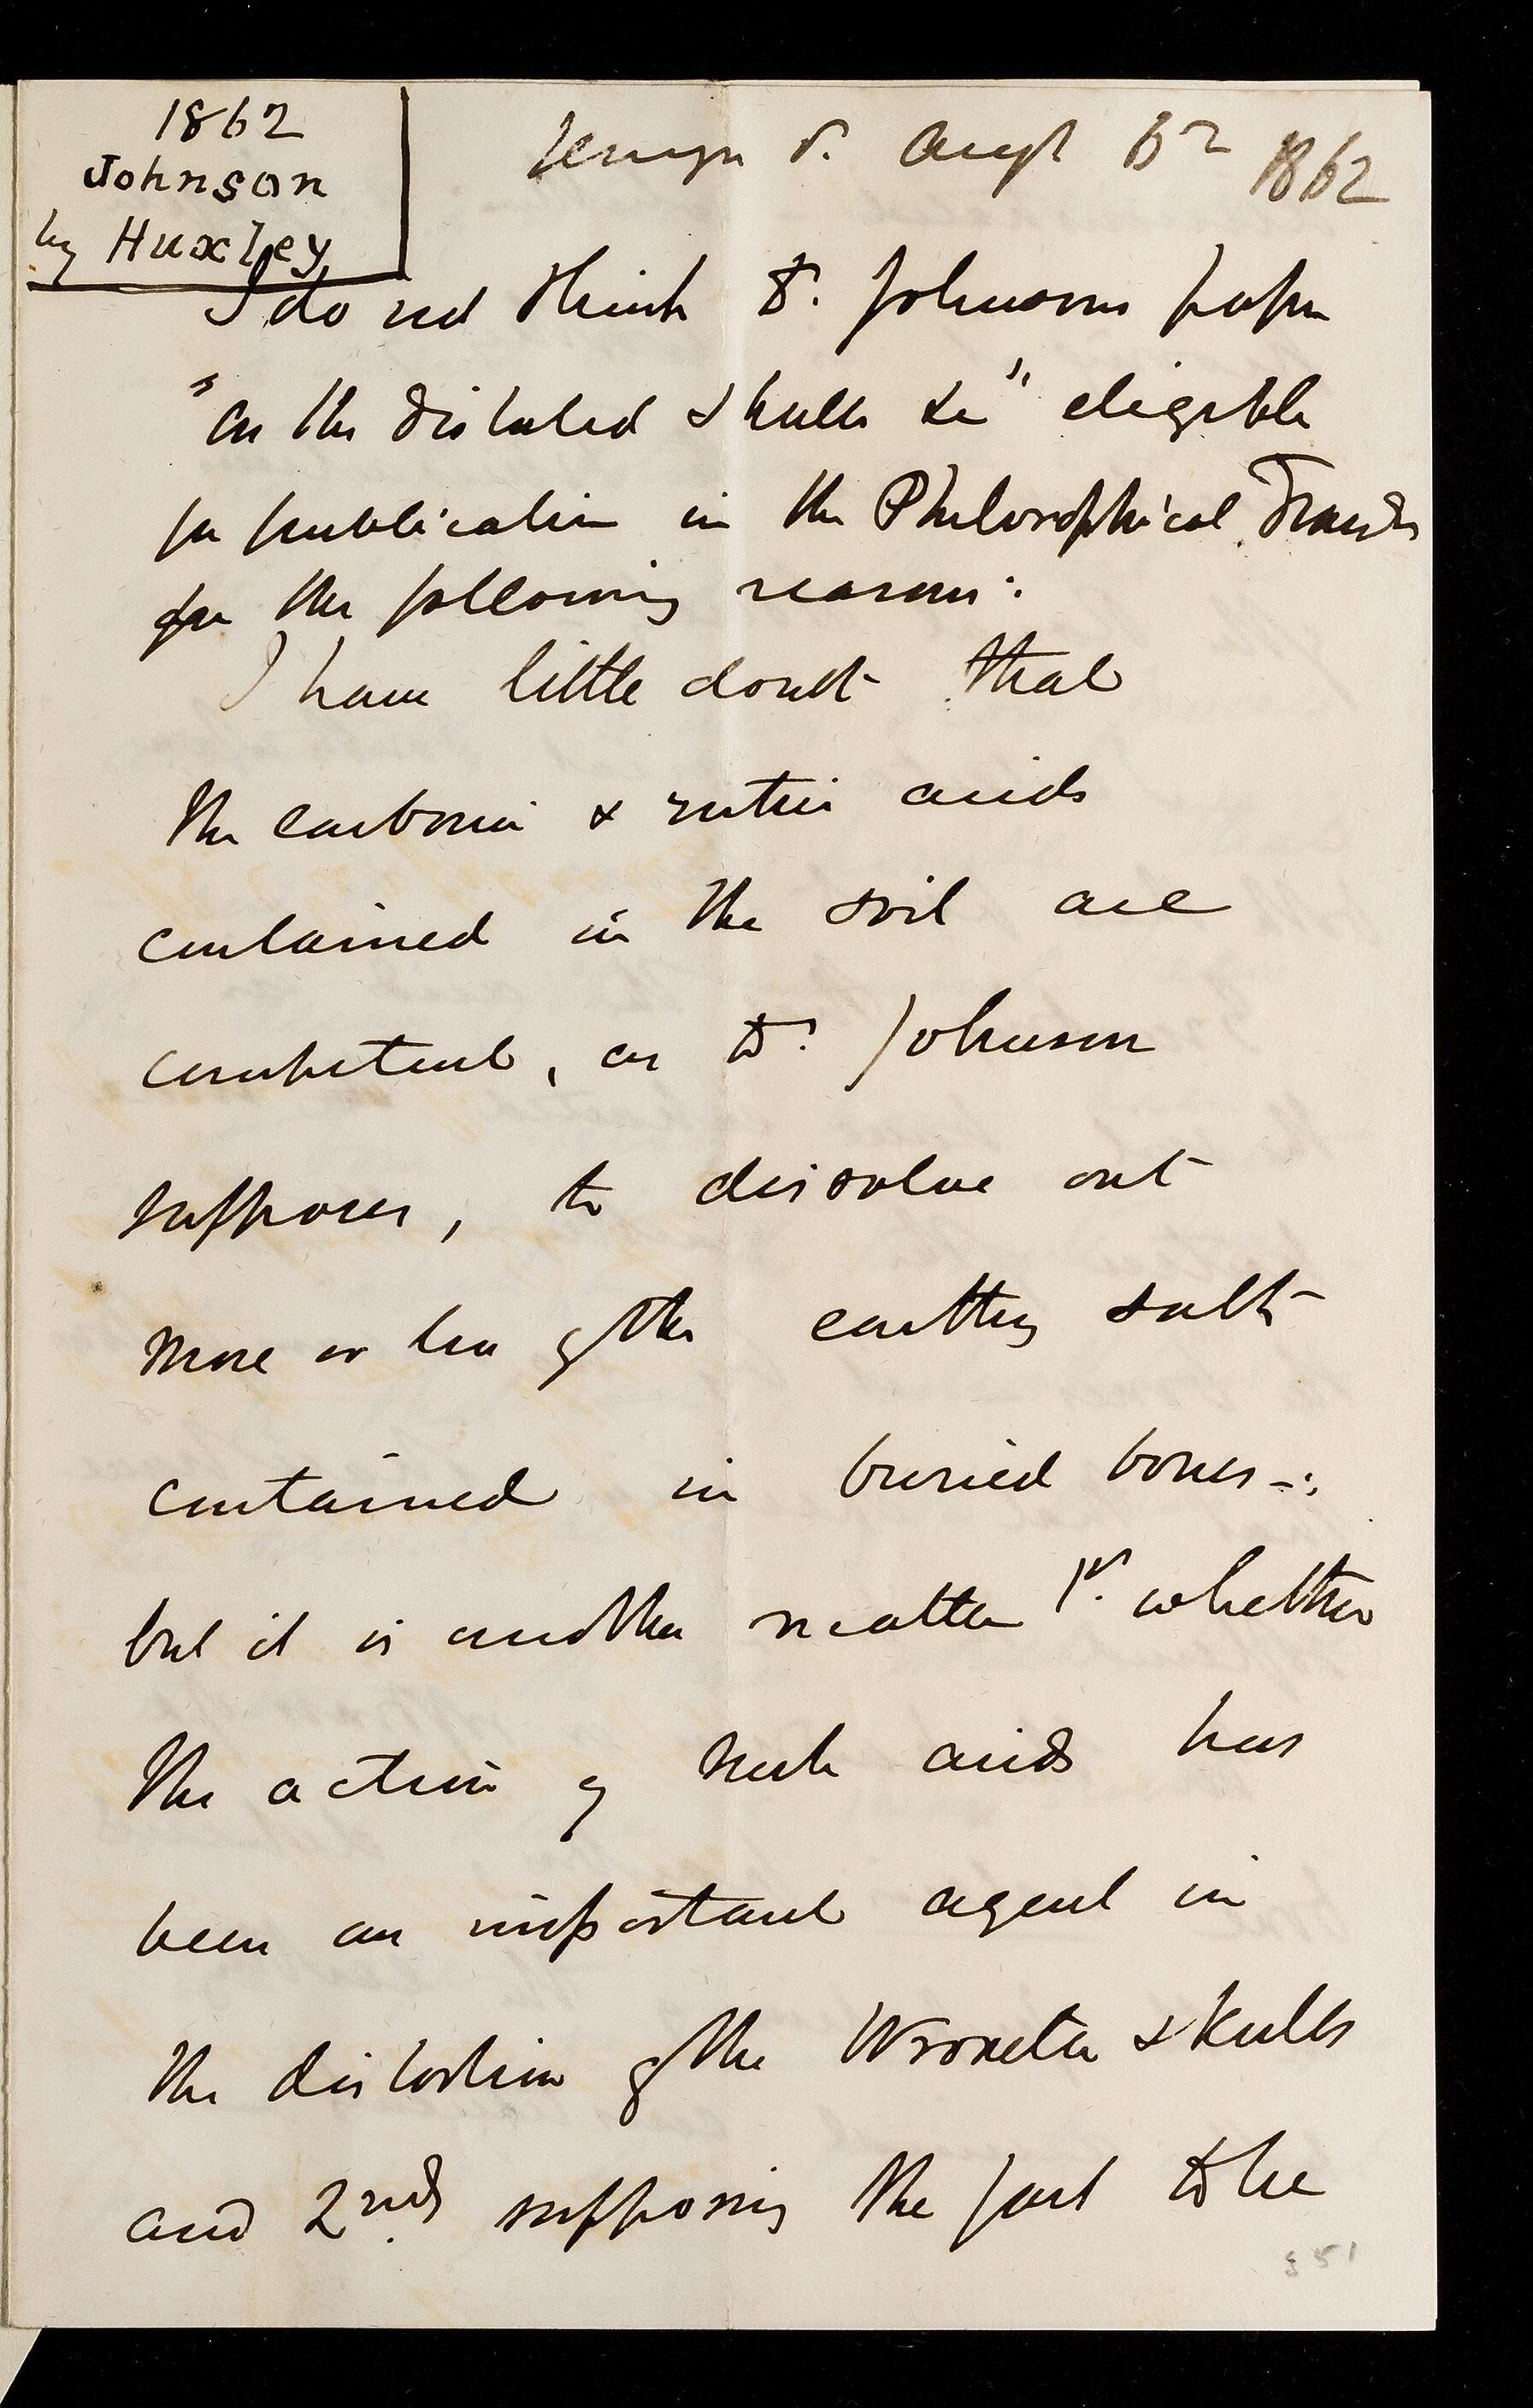 1862
Johnson
by Huxley
Jermyn St. Augt 6th 1862
I do not think Dr. Johnsons paper
"On the distorted skulls &c" eligible
for publication in the Philosophical Trans
for the following reasons:
I have little doubt that
the carbonic & nitric acids
contained in the soil are
competent, as Dr. Johnson
supposes, to dissolve out
more or less of the earthy salts
contained in buried bones-:
but it is another matter 1st. whether
the action of such acids has
been an important agent in
the distortion of the Wroxeter skulls
and 2nd. supposing the fact to be
351